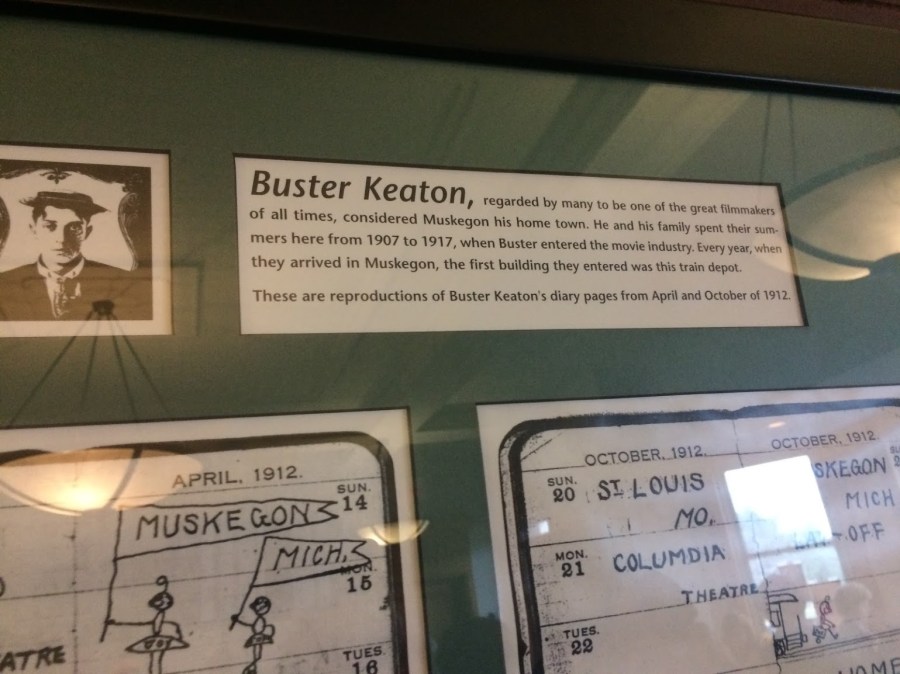 Buster Keaton, regarded by many to be one of the great filmmakers
of all times, considered Muskegon his home town. He and his family spent their sum-
mers here from 1907 to 1917, when Buster entered the movie industry. Every year, when
they arrived in Muskegon, the first building they entered was this train depot.
These are reproductions of Buster Keaton's diary pages from April and October of 1912.
APRIL, 1912.
SUN.
14
MUSKEGON
MICH.
MON.
15
ATRE
TUES.
16
OCTOBER, 1912.
SUN.
20
ST. LOUIS
MO.
MON.
21
COLUMDIA
THEATRE
TUES.
22
OCTOBER, 1912.
SKEGON
MICH
OFF
HOME